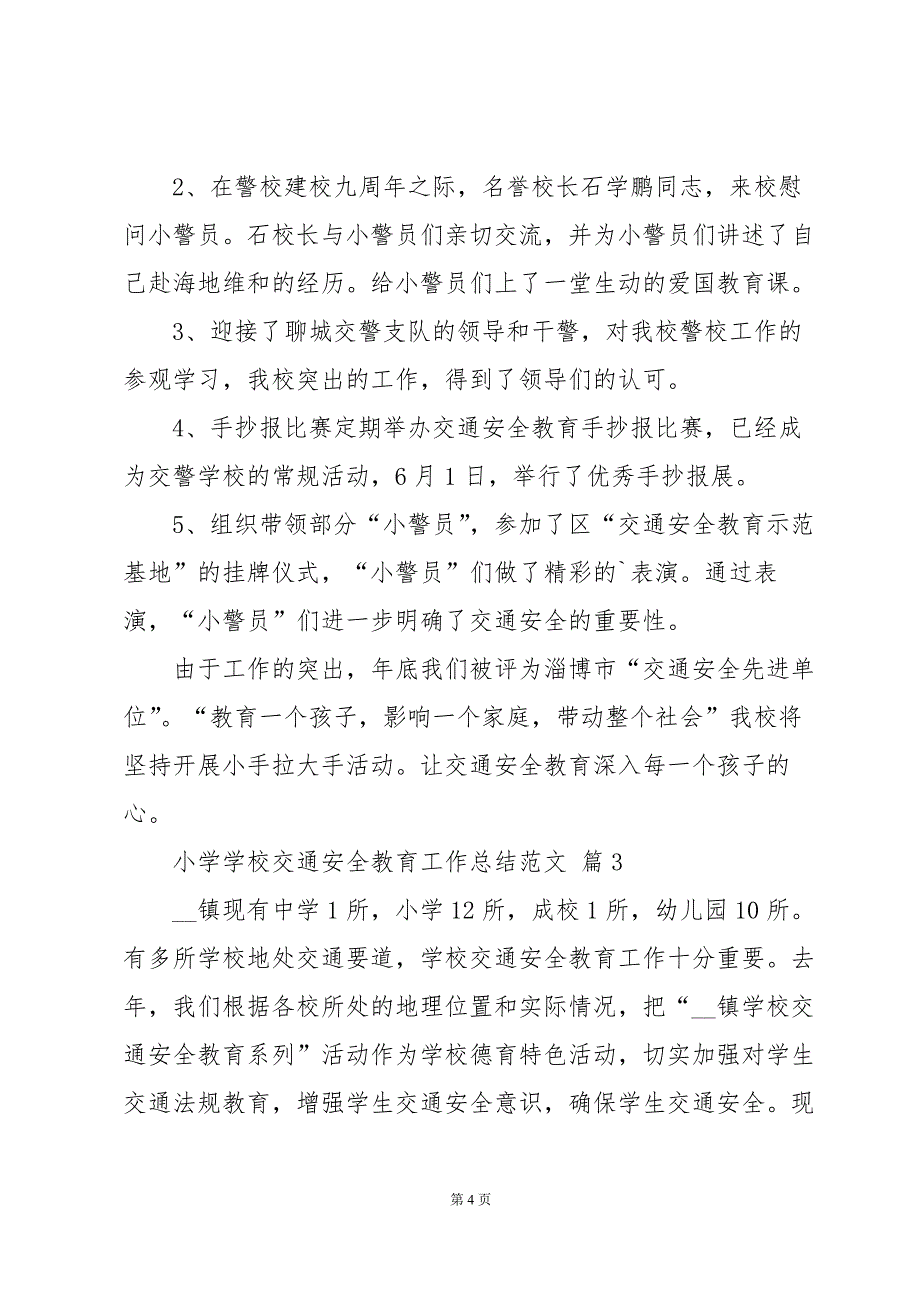 2、在警校建校九周年之际，名誉校长石学鹏同志，来校慰
问小警员。石校长与小警员们亲切交流，并为小警员们讲述了自
己赴海地维和的经历。给小警员们上了一堂生动的爱国教育课。
3、迎接了聊城交警支队的领导和干警，对我校警校工作的
参观学习，我校突出的工作，得到了领导们的认可。
4、手抄报比赛定期举办交通安全教育手抄报比赛，已经成
为交警学校的常规活动，6 月 1 日，举行了优秀手抄报展。
5、组织带领部分“小警员”，参加了区“交通安全教育示范
基地”的挂牌仪式，“小警员”们做了精彩的`表演。通过表
演，“小警员”们进一步明确了交通安全的重要性。
由于工作的突出，年底我们被评为淄博市“交通安全先进单
位”。“教育一个孩子，影响一个家庭，带动整个社会”我校将
坚持开展小手拉大手活动。让交通安全教育深入每一个孩子的
心。
小学学校交通安全教育工作总结范文 篇 3
__镇现有中学 1 所，小学 12 所，成校 1 所，幼儿园 10 所。
有多所学校地处交通要道，学校交通安全教育工作十分重要。去
年，我们根据各校所处的地理位置和实际情况，把“__镇学校交
通安全教育系列”活动作为学校德育特色活动，切实加强对学生
交通法规教育，增强学生交通安全意识，确保学生交通安全。现
第 4 页